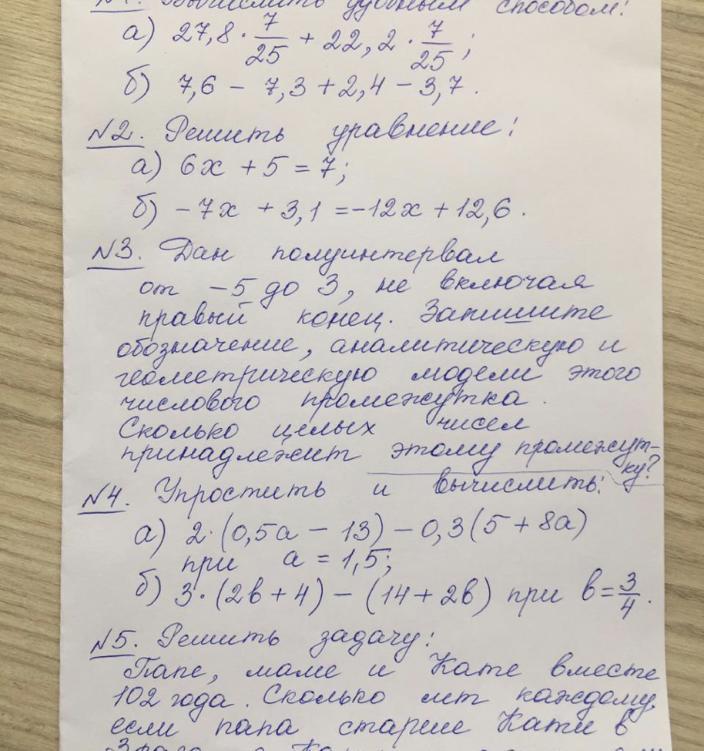 №1. Вычислить удобным способом:
а) 27,8 · 7/25 + 22,2 · 7/25;
б) 7,6 - 7,3 + 2,4 - 3,7.
№2. Решить уравнение:
а) 6x + 5 = 7;
б) -7x + 3,1 = -12x + 12,6.
№3. Дан полуинтервал
от -5 до 3, не включая
правый конец. Запишите
обозначение, аналитическую и
геометрическую модели этого
числового промежутка.
Сколько целых чисел
принадлежит этому промежут-
ку?
№4. Упростить и вычислить:
а) 2·(0,5а - 13) - 0,3(5 + 8а)
при а = 1,5;
б) 3·(2в + 4) - (14 + 2в) при в = 3/4.
№5. Решить задачу:
Папе, маме и Кате вместе
102 года. Сколько лет каждому,
если папа старше Кати в
3 раза